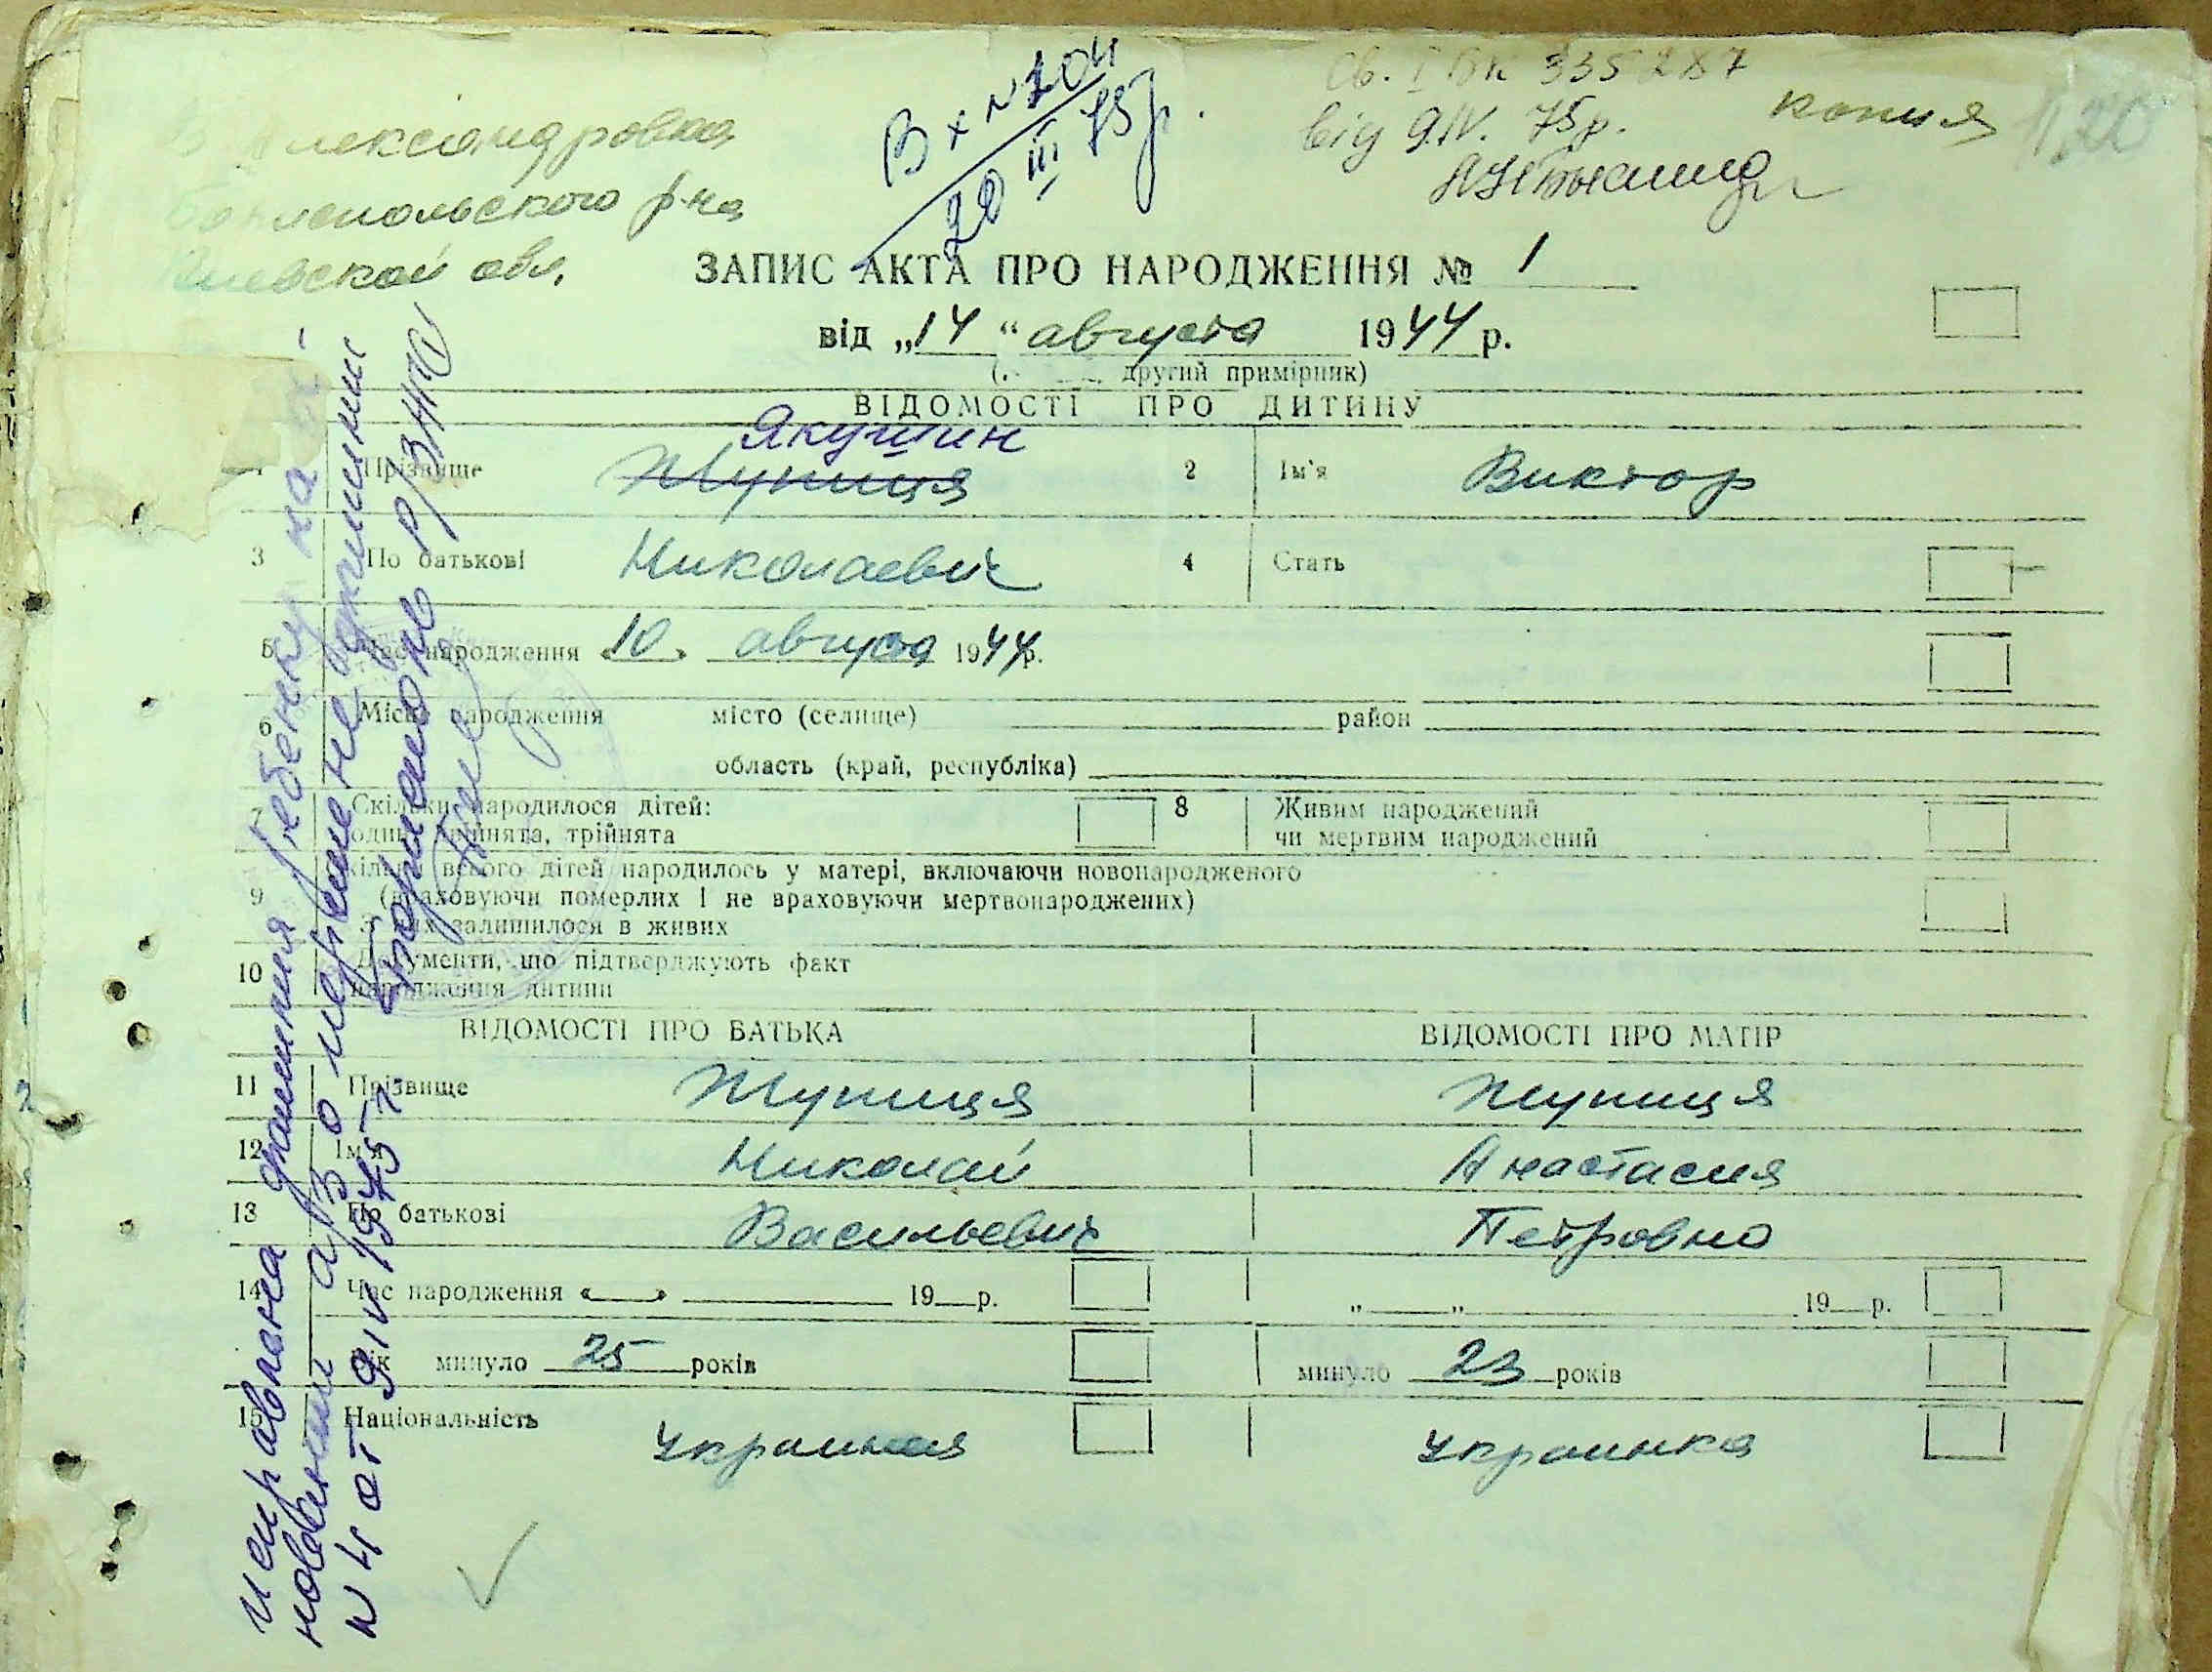 Св. I БК 335287
від 9.IV. 75р.
копия
Вх N 204
20 III 75р.
Александровка
Бориспольского р-на
Киевской обл.
ЗАПИС АКТА ПРО НАРОДЖЕННЯ № 1
від „14“ августа 1944 р.
другий примірник)
ВІДОМОСТІ ПРО ДИТИНУ
Якушин
Прізвище Жупиця 2 Ім'я Виктор
3 По батькові Николаевич 4 Стать
5 Час народження «10» августа 1944р.
6 Місце народження місто (селище) район
область (край, республіка)
7 Скільки народилося дітей: 8 Живим народжений
одна, двійнята, трійнята чи мертвим народжений
Скільки всього дітей народилось у матері, включаючи новонародженого
9 (враховуючи померлих і не враховуючи мертвонароджених)
З них залишилося в живих
10 Документи, що підтверджують факт
народження дитини
ВІДОМОСТІ ПРО БАТЬКА ВІДОМОСТІ ПРО МАТІР
11 Прізвище Жупиця Жупиця
12 Ім'я Николай Анастасия
13 По батькові Васильевич Петровна
14 Час народження «» 19 р. „ „ 19 р.
Вік минуло 25 років минуло 23 років
15 Національність Украинец Украинка
исправлена фамилия ребенку на
о перемене фамилии
N 4 от 9 IV 1975 г.